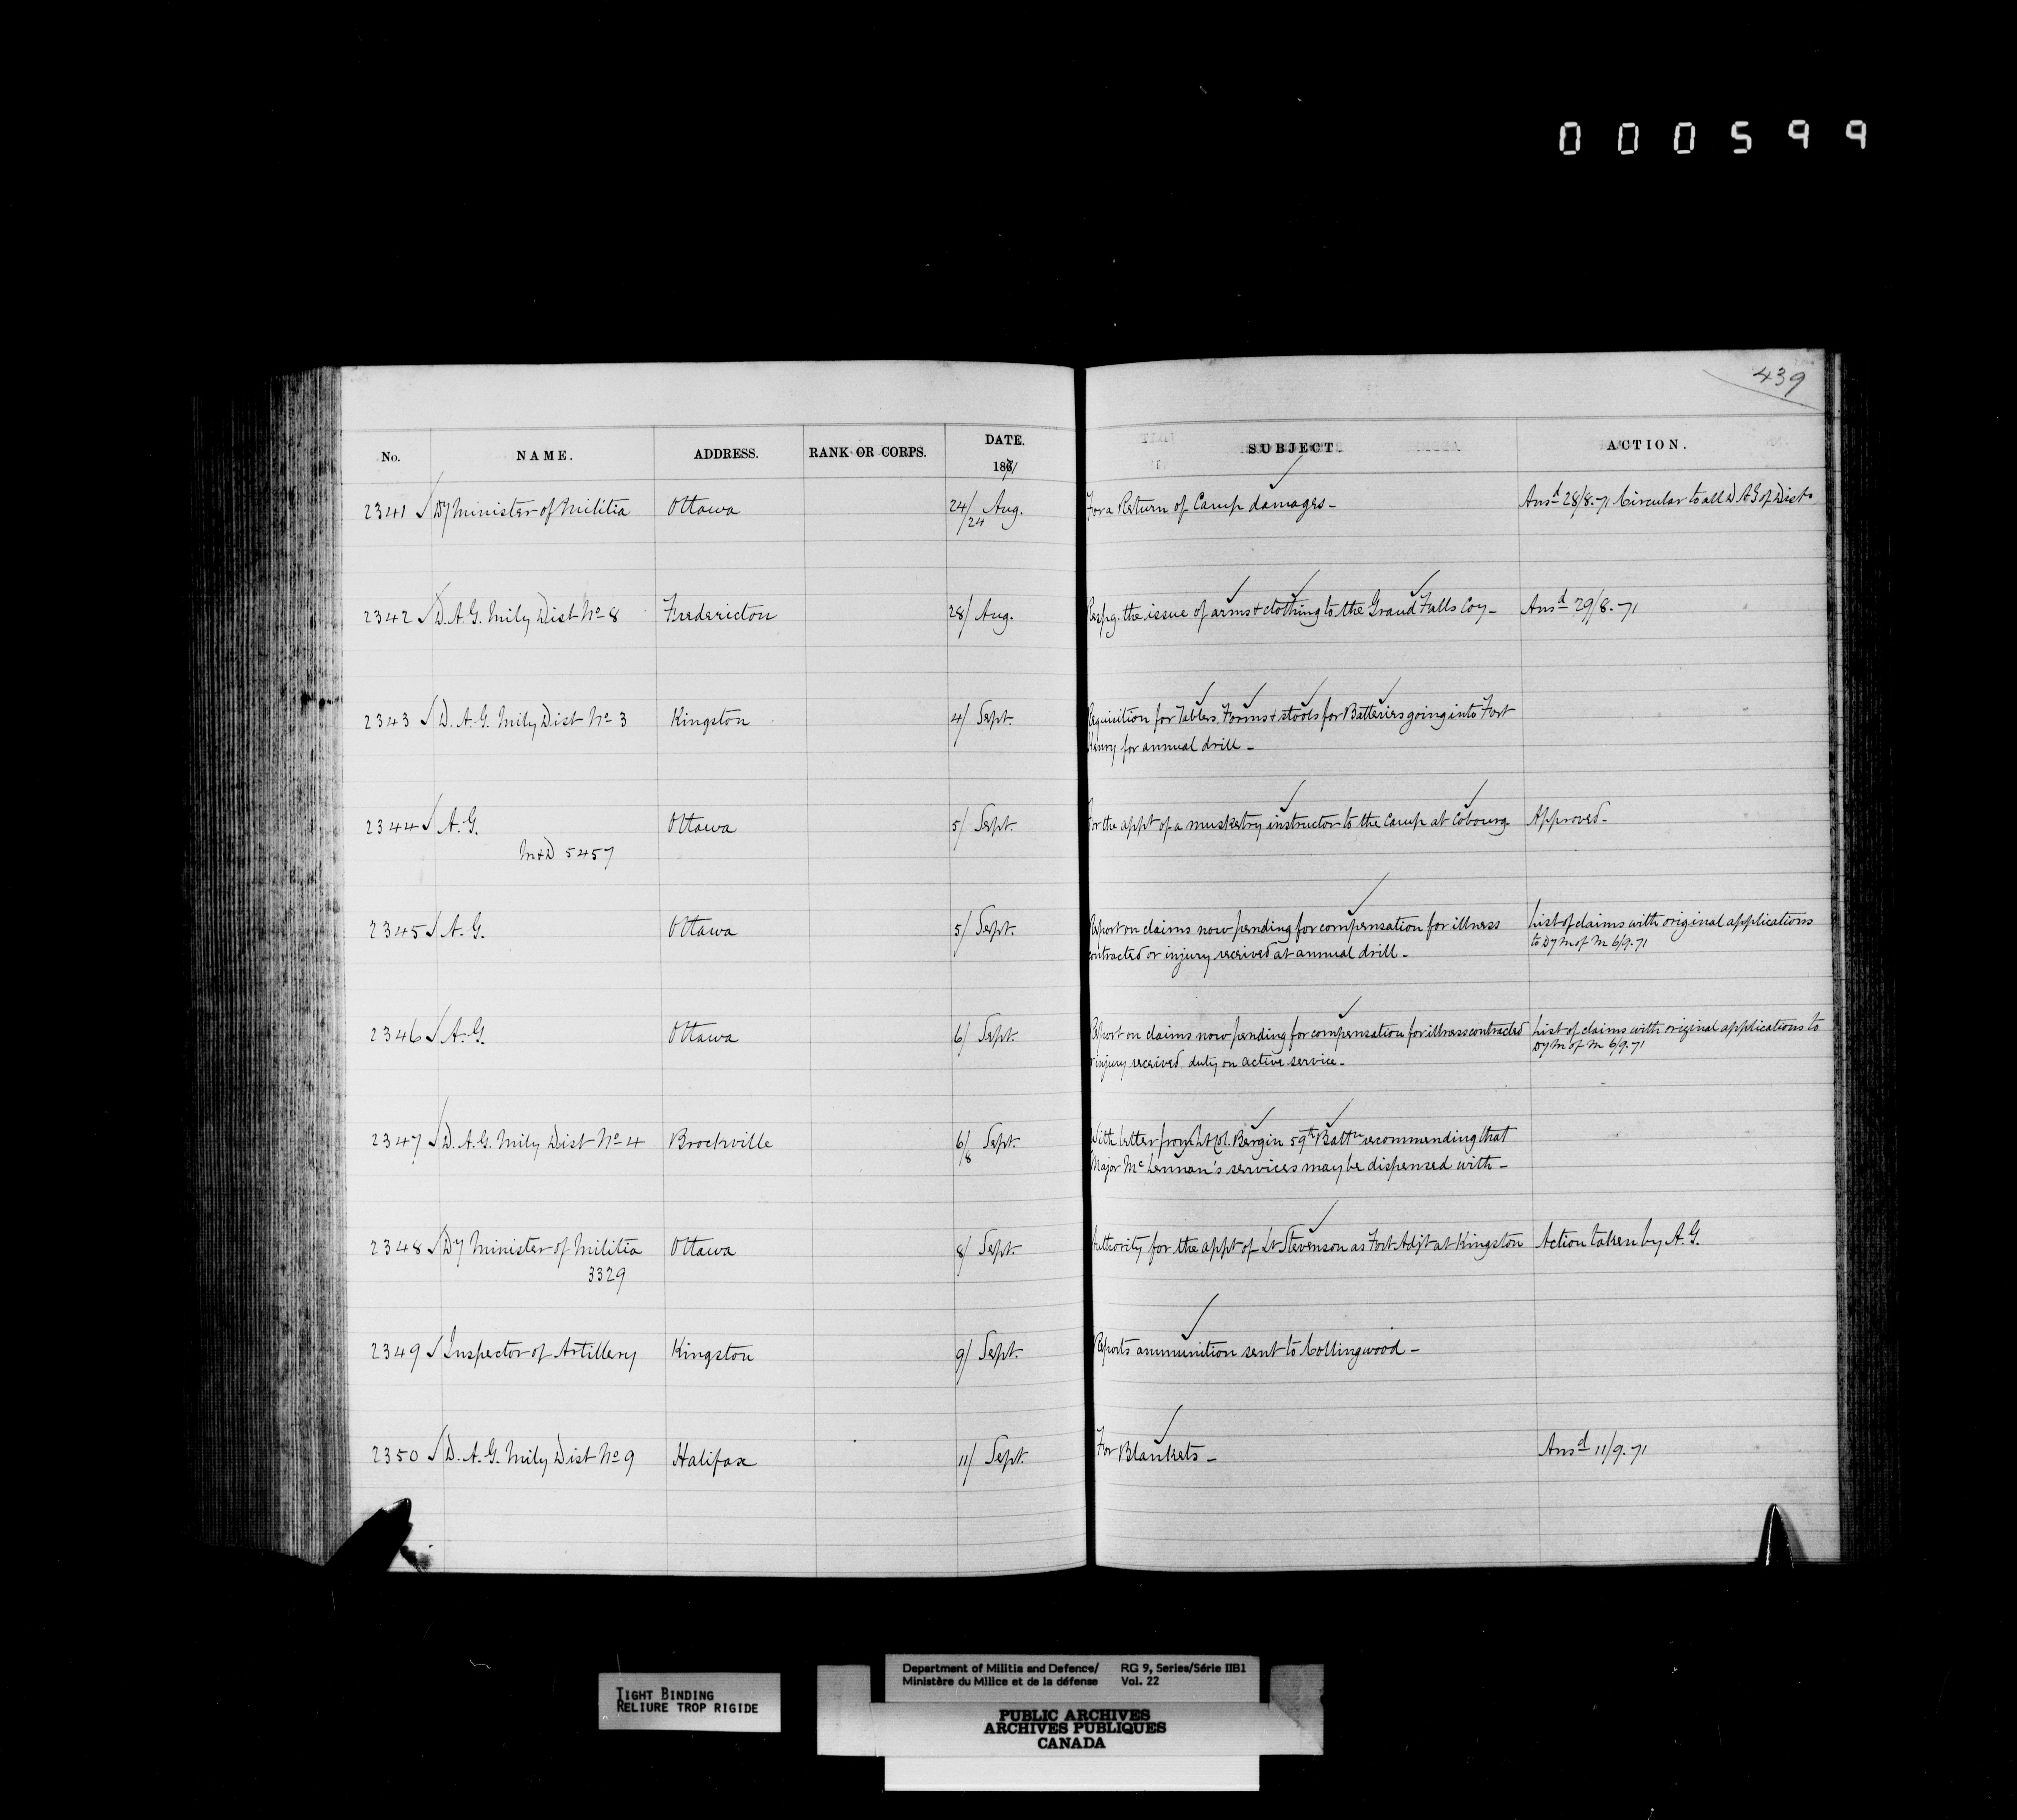 000599
439
No. NAME. ADDRESS. RANK OR CORPS. DATE. 1871 SUBJECT. ACTION.
2341 Dy Minister of Militia Ottawa 24/24 Aug. For a Return of Camp damages - Ansd 28/8-71 Circular to all D A G of Dists
2342 D. A. G. Mily Dist No 8 Fredericton 28/ Aug. Respg. the issue of arms + clothing to the Grand Falls Coy - Ansd 29/8-71
2343 D. A. G. Mily Dist No 3 Kingston 4/ Sept. Requisition for Tables, Forms + stools for Batteries going into Fort
Henry for annual drill -
2344 A. G. Ottawa 5/ Sept. For the appt of a musketry instructor to the Camp at Cobourg Approved -
M+D 5457
2345 A. G. Ottawa 5/ Sept. Report on claims now pending for compensation for illness List of claims with original applications
contracted or injury received at annual drill - to Dy M of M 6/9.71
2346 A. G. Ottawa 6/ Sept. Report on claims now pending for compensation for illness contracted List of claims with original applications to
or injury received duty on active service - Dy M of M 6/9.71
2347 D. A. G. Mily Dist No 4 Brockville 6/8 Sept. With letter from Lt Col. Bergin 59th Battn recommending that
Major McLennan's services may be dispensed with -
2348 Dy Minister of Militia Ottawa 8/ Sept. Authority for the appt of Lt Stevenson as Fort Adjt at Kingston Action taken by A. G.
3329
2349 Inspector of Artillery Kingston 9/ Sept. Reports ammunition sent to Collingwood -
2350 D. A. G. Mily Dist No 9 Halifax 11/ Sept. For Blankets - Ansd 11/9.71
TIGHT BINDING
RELIURE TROP RIGIDE
Department of Militia and Defence/ RG 9, Series/Série IIB1
Ministère du Milice et de la défense Vol. 22
PUBLIC ARCHIVES
ARCHIVES PUBLIQUES
CANADA